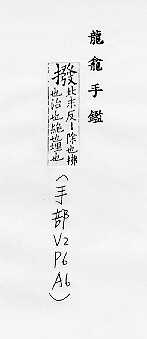 龍龕手鑑
撥北末反〻除也棑
也治也絶也壇也
(手部V2P6A6)